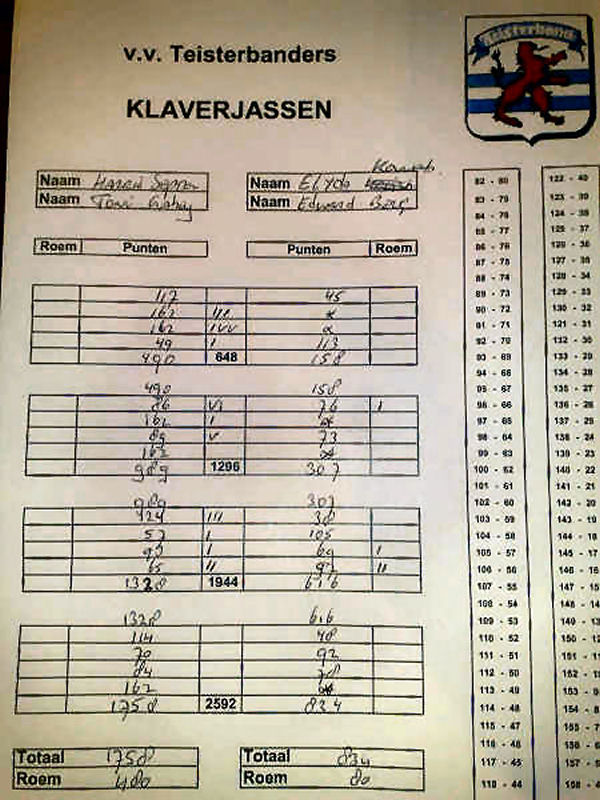 Teisterband
v.v. Teisterbanders
KLAVERJASSEN
Naam
Naam Toni
Naam Elyda
Naam Edward Berg
Roem Punten Punten Roem
117 45
162 III x
162 IVV x
49 I 113
490 648 158
490 158
86 VI 76 I
162 I x
89 V 73
162 x
989 1296 307
989 307
124 III 38
57 I 105
93 I 69 I
65 II 97 II
1328 1944 616
1328 616
114 48
70 92
84 78
162
1758 2592 834
Totaal 1758
Roem 480
Totaal 834
Roem 80
82 - 80
83 - 79
84 - 78
85 - 77
86 - 76
87 - 75
88 - 74
89 - 73
90 - 72
91 - 71
92 - 70
93 - 69
94 - 68
95 - 67
96 - 66
97 - 65
98 - 64
99 - 63
100 - 62
101 - 61
102 - 60
103 - 59
104 - 58
105 - 57
106 - 56
107 - 55
108 - 54
109 - 53
110 - 52
111 - 51
112 - 50
113 - 49
114 - 48
115 - 47
116 - 46
117 - 45
118 - 44
122 - 40
123 - 39
124 - 38
125 - 37
126 - 36
127 - 35
128 - 34
129 - 33
130 - 32
131 - 31
132 - 30
133 - 29
134 - 28
135 - 27
136 - 26
137 - 25
138 - 24
139 - 23
140 - 22
141 - 21
142 - 20
143 - 19
144 - 18
145 - 17
146 - 16
147 - 15
148 - 14
149 - 13
150 - 12
151 - 11
152 - 1
153 - 9
154 - 8
155 - 7
156 - 6
157 - 5
158 - 4